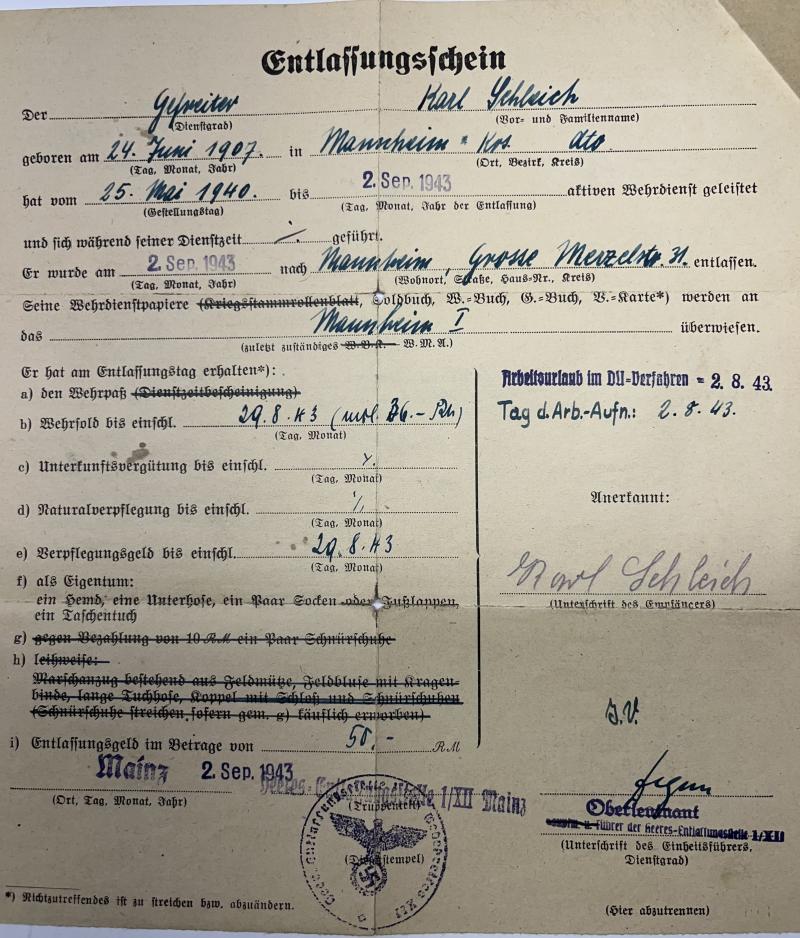 Entlassungsschein
Der Gefreiter Karl Schleich
(Dienstgrad) (Vor- und Familienname)
geboren am 24. Juni 1907. in Mannheim - Krs. dto
(Tag, Monat, Jahr) (Ort, Bezirk, Kreis)
hat vom 25. Mai 1940. bis 2. Sep. 1943 aktiven Wehrdienst geleistet
(Gestellungstag) (Tag, Monat, Jahr der Entlassung)
und sich während seiner Dienstzeit ./. geführt.
Er wurde am 2. Sep. 1943 nach Mannheim, Grosse Merzelstr. 31. entlassen.
(Tag, Monat, Jahr) (Wohnort, Straße, Haus-Nr., Kreis)
Seine Wehrdienstpapiere (Kriegsstammrollenblatt, Soldbuch, W.-Buch, G.-Buch, V.-Karte*) werden an
das Mannheim I überwiesen.
(zuletzt zuständiges W.B.K. W.M.A.)
Er hat am Entlassungstag erhalten*):
a) den Wehrpaß (Dienstzeitbescheinigung)
b) Wehrsold bis einschl. 29.8.43
(Tag, Monat)
c) Unterkunftsvergütung bis einschl.
(Tag, Monat)
d) Naturalverpflegung bis einschl. ./.
(Tag, Monat)
e) Verpflegungsgeld bis einschl. 29.8.43
(Tag, Monat)
f) als Eigentum:
ein Hemd, eine Unterhose, ein Paar Socken oder Fußlappen,
ein Taschentuch
g) gegen Bezahlung von 10 RM ein Paar Schnürschuhe
h) leihweise:
Marschanzug bestehend aus Feldmütze, Feldbluse mit Kragen-
binde, lange Tuchhose, Koppel mit Schloß und Schnürschuhen
(Schnürschuhe streichen, sofern gem. g) käuflich erworben)
i) Entlassungsgeld im Betrage von 50.- RM
Arbeitsurlaub im DU-Verfahren = 2. 8. 43.
Tag d. Arb.-Aufn.: 2. 8. 43.
Anerkannt:
Karl Schleich
(Unterschrift des Empfängers)
J.V.
Mainz 2. Sep. 1943
(Ort, Tag, Monat, Jahr)
Heeres-Entlassungsstelle 1/XII Mainz
(Truppenteil)
(Dienststempel)
Oberleutnant
u. Führer der Heeres-Entlassungsstelle 1/XII
(Unterschrift des Einheitsführers,
Dienstgrad)
*) Nichtzutreffendes ist zu streichen bzw. abzuändern.
(Hier abzutrennen)